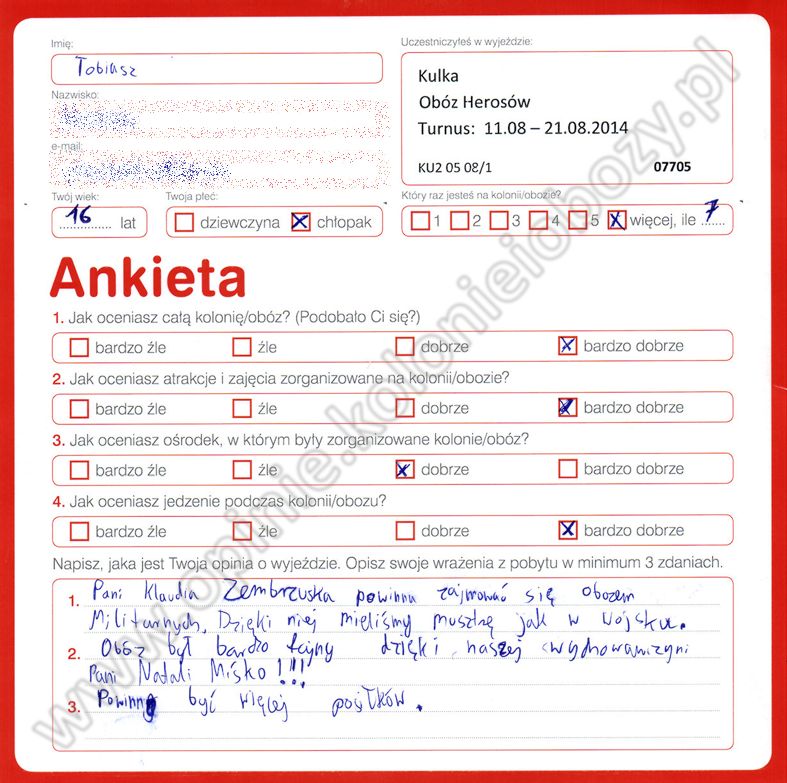 Imię:
Tobiasz
Uczestniczyłeś w wyjeździe:
Kulka
Obóz Herosów
Turnus: 11.08 – 21.08.2014
KU2 05 08/1 07705
Nazwisko:
e-mail:
Twój wiek:
16 lat
Twoja płeć:
dziewczyna chłopak
Który raz jesteś na kolonii/obozie?
1 2 3 4 5 więcej, ile 7
Ankieta
1. Jak oceniasz całą kolonię/obóz? (Podobało Ci się?)
bardzo źle źle dobrze bardzo dobrze
2. Jak oceniasz atrakcje i zajęcia zorganizowane na kolonii/obozie?
bardzo źle źle dobrze bardzo dobrze
3. Jak oceniasz ośrodek, w którym były zorganizowane kolonie/obóz?
bardzo źle źle dobrze bardzo dobrze
4. Jak oceniasz jedzenie podczas kolonii/obozu?
bardzo źle źle dobrze bardzo dobrze
Napisz, jaka jest Twoja opinia o wyjeździe. Opisz swoje wrażenia z pobytu w minimum 3 zdaniach.
1. Pani Klaudia Zembrzuska powinna zajmować się obozem
Militarnych. Dzięki niej mieliśmy musztrę jak w wojsku.
2. Obóz był bardzo fajny dzięki naszej wychowawczyni
Pani Natali Miśko!!!
3. Powinno być więcej posiłków.
www.opinie.kolonieiobozy.pl